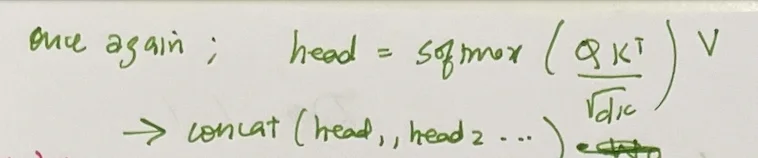 once again ; head = sofmax ( QKᵀ / √dk ) V
→ concat (head₁, head₂ ...)